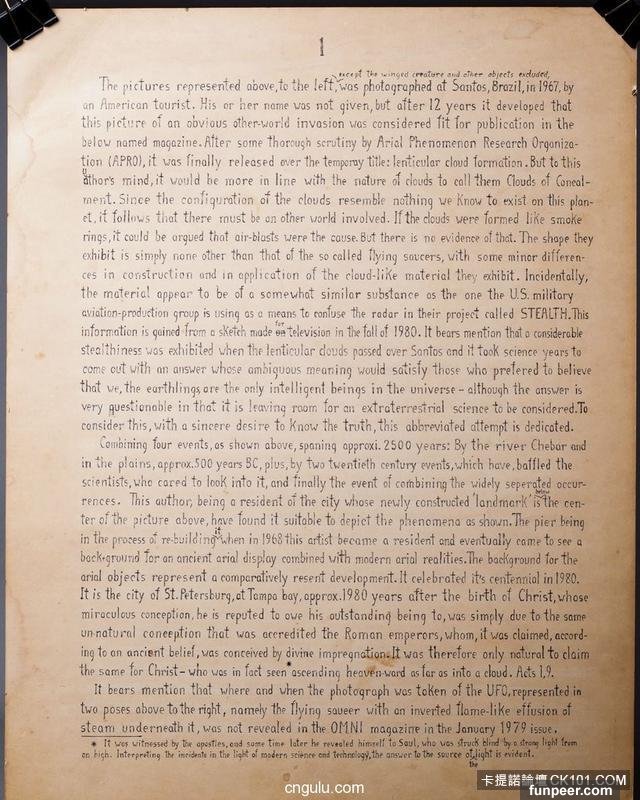 1
except the winged creature and other objects excluded,
The pictures represented above, to the left, was photographed at Santos, Brazil, in 1967, by
an American tourist. His or her name was not given, but after 12 years it developed that
this picture of an obvious other-world invasion was considered fit for publication in the
below named magazine. After some thorough scrutiny by Arial Phenomenon Research Organiza-
tion (APRO), it was finally released over the temporay title: lenticular cloud formation. But to this
author's mind, it would be more in line with the nature of clouds to call them Clouds of Conceal-
ment. Since the configuration of the clouds resemble nothing we Know to exist on this plan-
et, it follows that there must be an other world involved. If the clouds were formed like smoke
rings, it could be argued that air-blasts were the cause. But there is no evidence of that. The shape they
exhibit is simply none other than that of the so called flying saucers, with some minor differen-
ces in construction and in application of the cloud-like material they exhibit. Incidentally,
the material appear to be of a somewhat similar substance as the one the U.S. military
aviation-production group is using as a means to confuse the radar in their project called STEALTH. This
information is gained from a sketch made for television in the fall of 1980. It bears mention that a considerable
stealthiness was exhibited when the lenticular clouds passed over Santos and it took science years to
come out with an answer whose ambiguous meaning would satisfy those who prefered to believe
that we, the earthlings are the only intelligent beings in the universe - although the answer is
very questionable in that it is leaving room for an extraterrestrial science to be considered. To
consider this, with a sincere desire to Know the truth, this abbreviated attempt is dedicated.
Combining four events, as shown above, spaning approxi. 2500 years: By the river Chebar and
in the plains, approx. 500 years BC, plus, by two twentieth century events, which have, baffled the
scientists, who cared to look into it, and finally the event of combining the widely seperated occur-
rences. This author, being a resident of the city whose newly constructed 'landmark' is below the cen-
ter of the picture above, have found it suitable to depict the phenomena as shown. The pier being
in the process of re-building it when in 1968 this artist became a resident and eventually came to see a
back-ground for an ancient arial display combined with modern arial realities. The background for the
arial objects represent a comparatively resent development. It celebrated it's centennial in 1980.
It is the city of St. Petersburg, at Tampa bay, approx. 1980 years after the birth of Christ, whose
miraculous conception, he is reputed to owe his outstanding being to, was simply due to the same
un-natural conception that was accredited the Roman emperors, whom, it was claimed, accord-
ing to an ancient belief, was conceived by divine impregnation. It was therefore only natural to claim
the same for Christ- who was in fact seen * ascending heaven-ward as far as into a cloud. Acts 1,9.
It bears mention that where and when the photograph was taken of the UFO, represented in
two poses above to the right, namely the flying saucer with an inverted flame-like effusion of
steam underneath it, was not revealed in the OMNI magazine in the January 1979 issue.
* It was witnessed by the apostles, and some time later he revealed himself to Saul, who was struck blind by a strong light from
on high. Interpreting the incidents in the light of modern science and technology, the answer to the source of the light is evident.
cngulu.com
卡提諾論壇 CK101.COM
funpeer.com